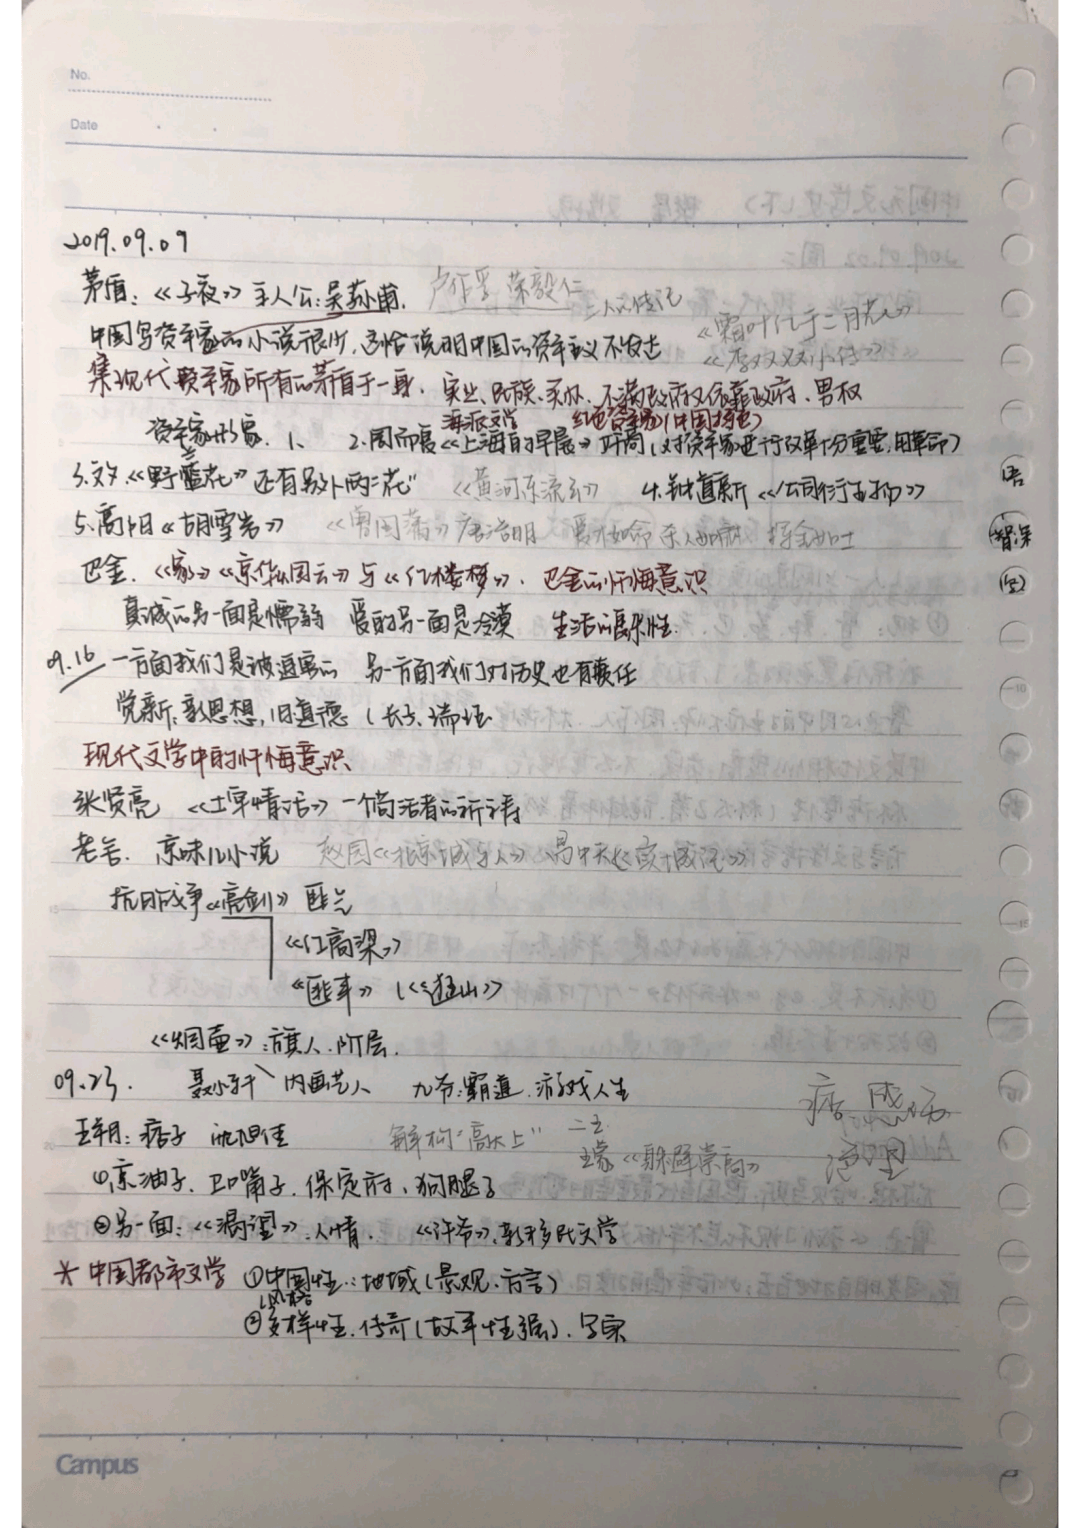 No.
Date
2019.09.09
茅盾:《子夜》主人公:吴荪甫. 卢作孚 荣毅仁
中国写资本家的小说很少,这恰说明中国的资本主义不发达 《霜叶红于二月花》
《李双双小传》
集现代资本家所有的矛盾于一身. 实业、民族、买办、不满政府又依靠政府、男权
海派文学 红色资本家(中国特色)
资本家形象. 1、 2.周而复《上海的早晨》 (对资本家进行改革十分重要,用革命)
3.文夕《野蛮花》还有另外两"花" 《黄河东流去》 4.钱道新《公司衍生物》
5.高阳《胡雪岩》 《曾国藩》唐浩明 爱才如命 杀人如麻 挥金如土
巴金.《家》《京华烟云》与《红楼梦》. 巴金的忏悔意识
真诚的另一面是懦弱 爱的另一面是冷漠 生活的复杂性.
09.16 一方面我们是被迫害的 另一方面我们对历史也有责任
觉新:新思想,旧道德(长子、瑞珏
现代文学中的忏悔意识
张贤亮 《土牢情话》一个苟活者的祈祷
老舍. 京味儿小说 赵园《北京:城与人》 易中天《读城记》
抗日战争《亮剑》匪气
《红高粱》
《匪事》(《狂山》
《烟壶》:旗人.阶层.
09.23. 聂小轩 内画艺人 九爷:霸道.游戏人生
王朔:痞子 解构"高大上" 二王
王蒙《躲避崇高》
①京油子、卫嘴子、保定府、狗腿子
②另一面:《渴望》.人情. 《许爷》.新移民文学
* 中国都市文学 ①中国性:地域(景观.方言)
风格
②多样性.传奇(故事性强).写实
Campus